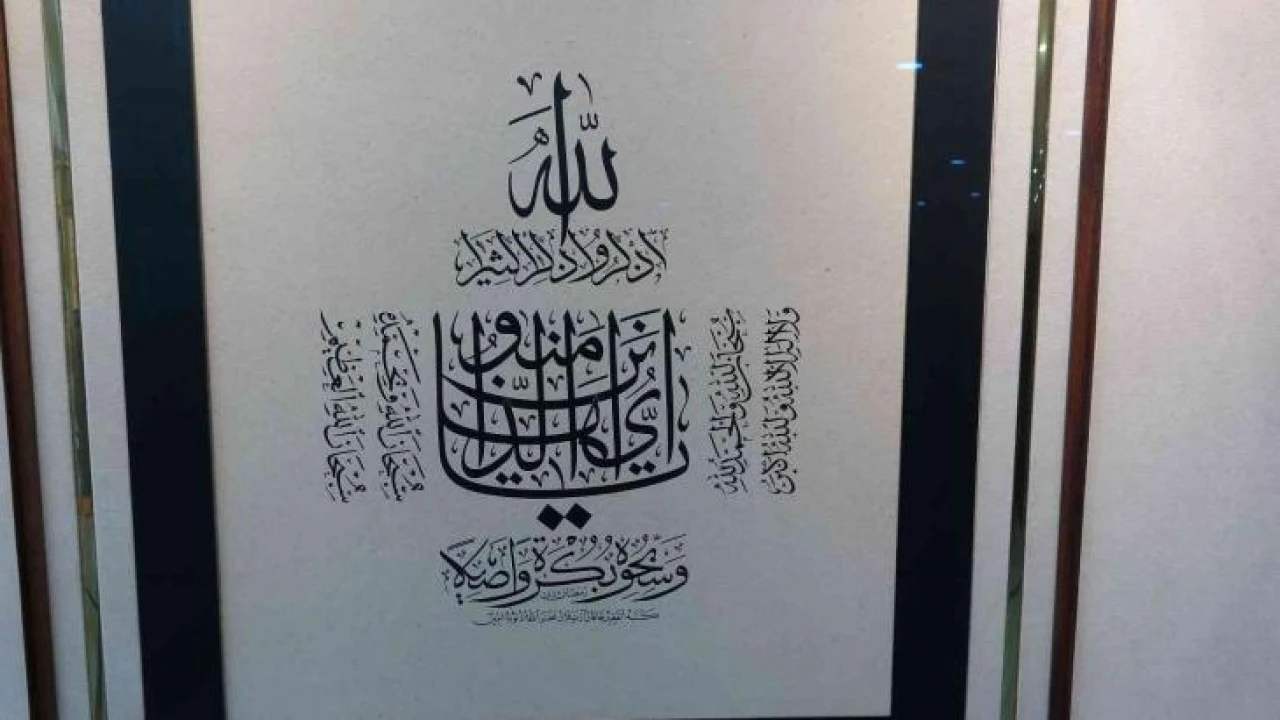 الله
اذكروا ذكرا كثيرا
يا أيها الذين آمنوا
سبحان الله والحمد لله
ولا إله إلا الله والله أكبر
سبحان الله وبحمده
سبحان الله العظيم
وسبحوه بكرة وأصيلا
كتبه الفقير